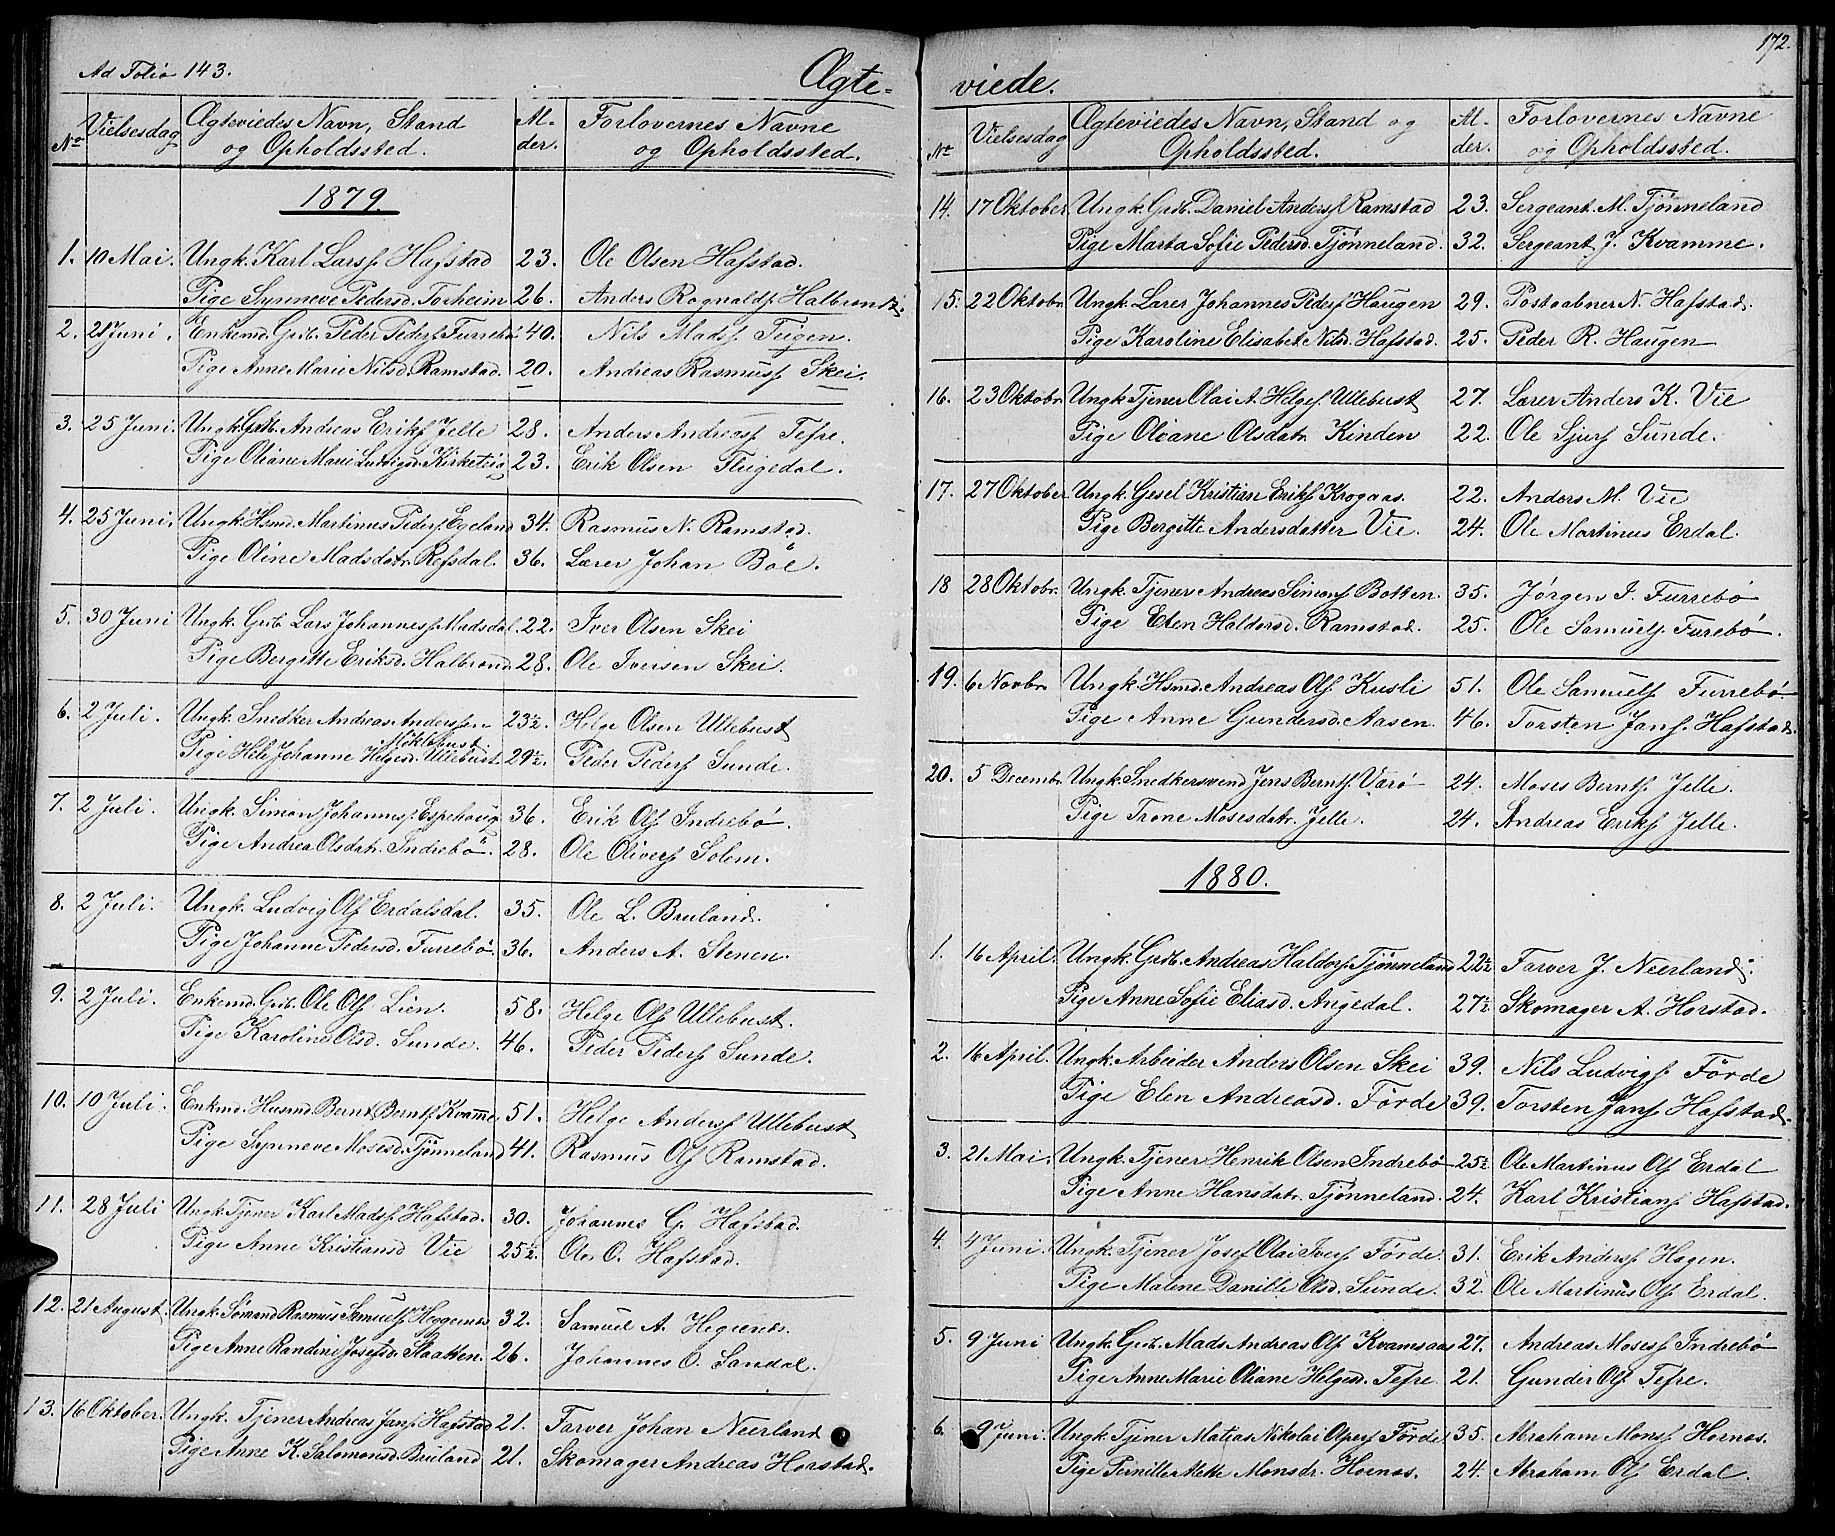 Ad Folio 143.
Ægte-
No
Vielsesdag
Ægteviedes Navn, Stand og Opholdssted.
Al-der.
Forlovernes Navne og Opholdssted.
1879.
1. 10 Mai. Ungk. Karl Larss. Hafstad 23. Ole Olsen Hafstad.
Pige Synneve Pedersd. Torheim 26. Anders Rognalds. Halbrend.
2. 21 Juni. Enkemd. Grdb. Peder Peders. Furrebø 40. Nils Madss. Teigen.
Pige Anne Marie Nilsd. Ramstad. 20. Andreas Rasmuss. Skei.
3. 25 Juni. Ungk. Grdb. Andreas Eriks. Jelle 28. Anders Andreass. Tefre.
Pige Oliane Marie Ludvigsd. Kirketeig 23. Erik Olsen Flugedal.
4. 25 Juni. Ungk. Hsmd. Martinus Peders. Egeland 34. Rasmus N. Ramstad.
Pige Oline Madsdatr. Refsdal. 36. Lærer Johan Böe.
5. 30 Juni Ungk. Grdb. Lars Johanness. Madsdal. 22. Iver Olsen Skei
Pige Bergitte Eriksd. Halbrend 28. Ole Iversen Skei.
6. 2 Juli. Ungk. Snedker Andreas Anderssen 23½ Helge Olsen Ullebust
Myklebust
Pige Hele Johanne Helgesd. Ullebust. 29½. Peder Peders. Sunde.
7. 2 Juli. Ungk. Simon Johanness. Espehoug 36. Erik Ols. Indrebø.
Pige Andrea Olsdatr. Indrebø. 28. Ole Olivers. Solem.
8. 2 Juli. Ungk. Ludvig Ols. Erdalsdal. 35. Ole L. Bruland.
Pige Johanne Pedersd. Furrebø. 36. Anders A. Stenen.
9. 2 Juli. Enkemd. Grdb. Ole Ols. Lien. 58. Helge Ols. Ullebust.
Pige Karoline Olsd. Sunde. 46. Peder Peders. Sunde.
10. 10 Juli. Enkmd. Husmd. Bernt Bernts. Kvamme 51. Helge Anders. Ullebust
Pige Synneve Mosesd. Tjønneland 41. Rasmus Ols. Ramstad.
11. 28 Juli Ungk. Tjener Karl Mads. Hafstad. 30. Johannes G. Hafstad.
Pige Anne Kristiansd Vie 25½. Ole O. Hafstad.
12. 21 August. Ungk. Sømand Rasmus Samuels. Heggenes 32. Samuel A. Hegrenes.
Pige Anne Randine Josefsdr. Slaatten. 26. Johannes O. Sandal.
13. 16 Oktober. Ungk. Tjener Andreas Jans. Hafstad 21. Farver Johan Neerland
Pige Anne K. Salomonsd. Bruland 21. Skomager Andreas Horstad.
172.
viede.
No
Vielsesdag
Ægteviedes Navn, Stand og Opholdssted.
Al-der.
Forlovernes Navne og Opholdssted.
14. 17 Oktober. Ungk. Grdb. Daniel Anders. Ramstad 23. Sergeant M. Tjønneland
Pige Marta Sofie Pedersd. Tjønneland. 32. Sergeant J. Kvamme.
15. 22 Oktobr. Ungk. Lærer Johannes Peders. Haugen 29. Postaabner N. Hafstad.
Pige Karoline Elisabet Nilsd. Hafstad. 25. Peder R. Haugen
16. 23 Oktobr. Ungk. Tjener Olai A. Helges. Ullebust 27. Lærer Anders K. Vie
Pige Oleane Olsdatr. Kinden 22. Ole Sjurs. Sunde.
17. 27 Oktober. Ungk. Gesel Kristian Eriks. Krogaas. 22. Anders M. Vie
Pige Bergitte Andersdatter Vie. 24. Ole Martinus Erdal.
18 28 Oktobr. Ungk. Tjener Andreas Simons. Botten. 35. Jørgen I. Furrebø
Pige Elen Haldorsd. Ramstad. 25. Ole Samuels. Furebø.
19. 6 Novbr. Ungk. Hsmd. Andreas Ols. Kusli 51. Ole Samuels. Furrebø
Pige Anne Gundersd. Aasen. 46. Torsten Jans. Hafstad.
20. 5 Decembr. Ungk. Snedkersvend Jens Bernts. Varø 24. Moses Bernts. Jelle.
Pige Trone Mosesdatr. Jelle. 24. Andreas Eriks. Jelle.
1880.
1. 16 April. Ungk. Grdb. Andreas Haldors. Tjønneland 22½ Farver J. Neerland.
Pige Anne Sofie Eliasd. Angedal. 27½ Skomager A. Horstad.
2. 16 April. Ungk. Arbeider Anders Olsen Skei 39. Nils Ludvigs. Förde
Pige Elen Andreasd. Förde 39. Torsten Jans. Hafstad.
3. 21 Mai. Ungk. Tjener Henrik Olsen Indrebø 25½ Ole Martinus Ols. Erdal
Pige Anne Hansdatr. Tjønneland. 24. Karl Kristians. Hafstad.
4. 4 Juni. Ungk. Tjener Josef Olai Ivers. Förde. 31. Erik Anders. Hagen.
Pige Malene Danille Olsd. Sunde. 32. Ole Martinus Ols. Erdal.
5. 9 Juni Ungk. Grdb. Mads Andreas Ols. Kvamsaas 27. Andreas Moses. Indrebø
Pige Anne Marie Oliane Helgesd. Tefre. 21. Gunder Ols. Tefre.
6. 9 Juni. Ungk. Tjener Matias Nikolai Apers. Förde 35. Abraham Mons. Hornes.
Pige Pernille Mette Monsdr. Hornes. 24. Abraham Ols. Erdal.